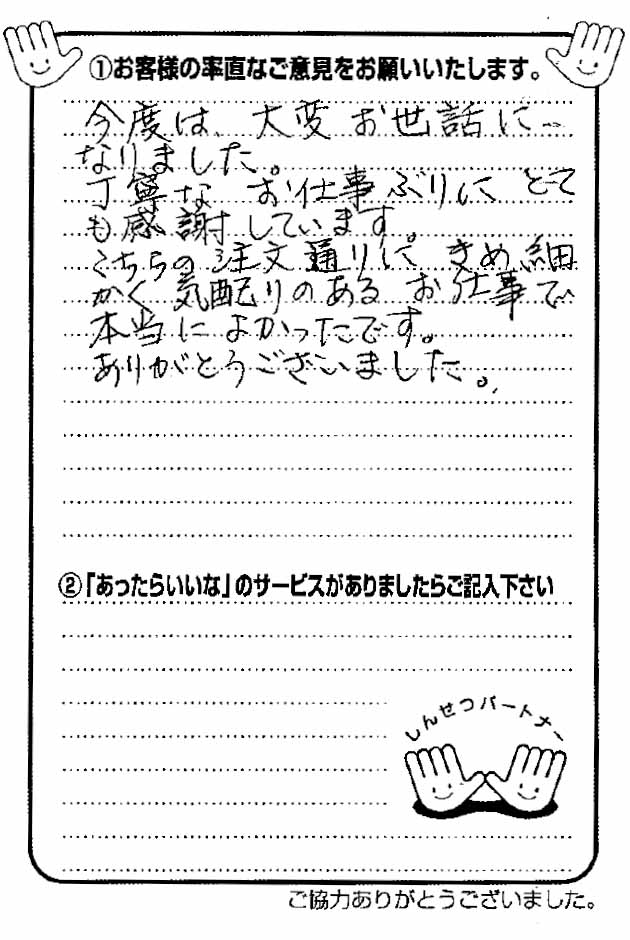 ①お客様の率直なご意見をお願いいたします。
今度は、大変お世話に
なりました。
丁寧な お仕事ぶりに とて
も感謝しています。
こちらの注文通りに きめ細
かく 気配りのある お仕事で
本当に よかったです。
ありがとうございました。
②「あったらいいな」のサービスがありましたらご記入下さい
しんせつパートナー
ご協力ありがとうございました。